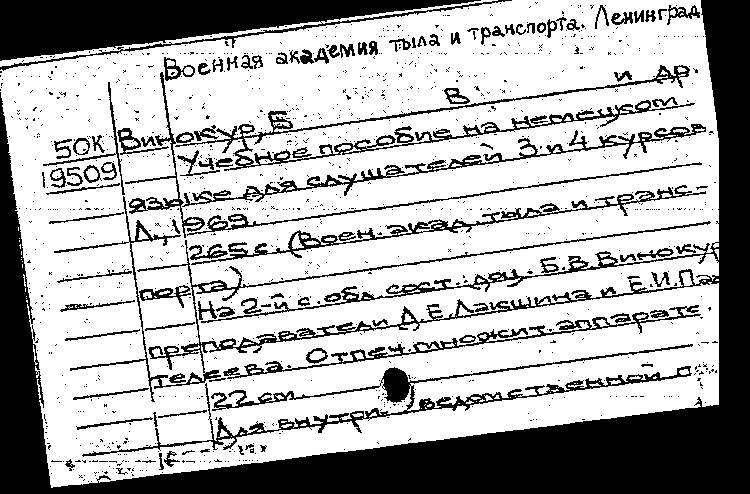 Военная академия тыла и транспорта. Ленинград
50К
19509
Винокур, Б В и др.
Учебное пособие на немецком
языке для слушателей 3 и 4 курсов.
Л., 1969.
265 с. (Воен. акад. тыла и транс-
порта)
На 2-й с. обл. сост.: доц. Б.В. Винокур
преподаватели Д.Е. Лакшина и Е.И. Пан
телеева. Отпеч. множит. аппарате.
22 см.
Для внутриведомственной п